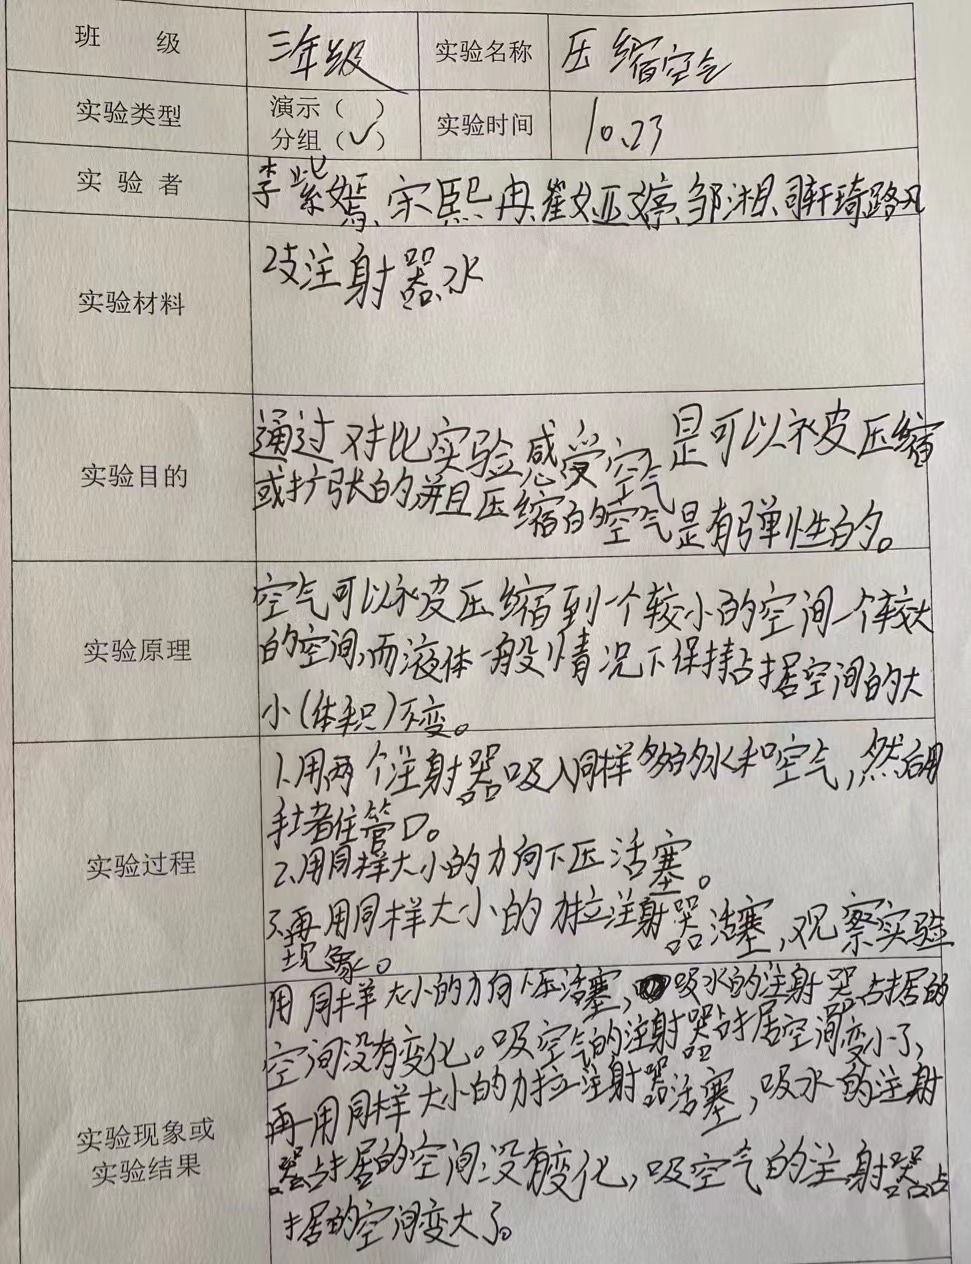 班 级 三年级 实验名称 压缩空气
实验类型 演示（ ） 实验时间 10.23
分组（✓）
实 验 者 李紫嫣、宋熙冉、崔亚婷、邹湘、司轩琦、路凡
实验材料 2支注射器、水
实验目的 通过对比实验感受空气是可以被压缩
或扩张的,并且压缩的空气是有弹性的。
实验原理 空气可以被压缩到一个较小的空间一个较大
的空间,而液体一般情况下保持占据空间的大
小(体积)不变。
实验过程 1.用两个注射器吸入同样多的水和空气,然后用
手堵住管口。
2.用同样大小的力向下压活塞。
3.再用同样大小的力拉注射器活塞,观察实验
现象。
实验现象或
实验结果
用同样大小的力向下压活塞,吸水的注射器占据的
空间没有变化。吸空气的注射器占据空间变小了,
再用同样大小的力拉注射器活塞,吸水的注射
器占据的空间没有变化,吸空气的注射器占
据的空间变大了。